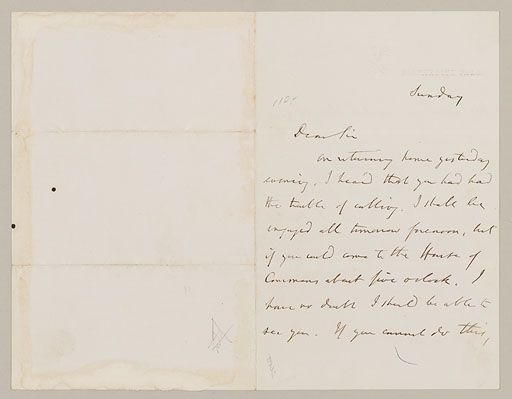 Sunday
Dear Sir
on returning home yesterday
evening, I heard that you had had
the trouble of calling. I shall be
engaged all tomorrow forenoon, but
if you could come to the House of
Commons about five o'clock, I
have no doubt I should be able to
see you. If you cannot do this,